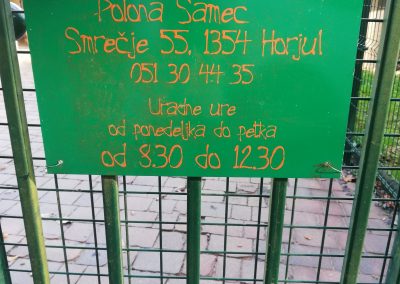 Polona Samec
Smrečje 55, 1354 Horjul
051 30 44 35
Uradne ure
od ponedeljka do petka
od 8.30 do 12.30